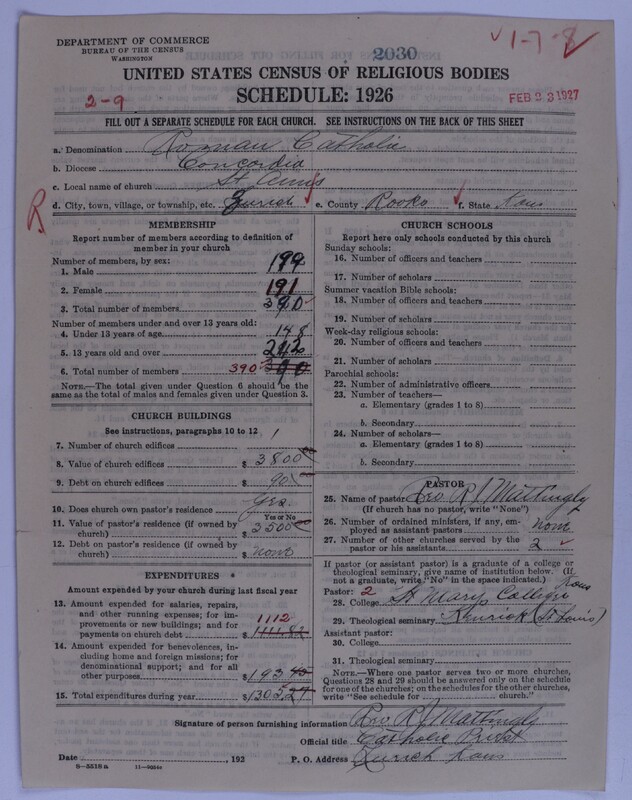 DEPARTMENT OF COMMERCE
BUREAU OF THE CENSUS
WASHINGTON
2030
1-7-8
UNITED STATES CENSUS OF RELIGIOUS BODIES
2-9
SCHEDULE: 1926
FEB 23 1927
FILL OUT A SEPARATE SCHEDULE FOR EACH CHURCH. SEE INSTRUCTIONS ON THE BACK OF THIS SHEET
a. Denomination Roman Catholic
b. Diocese Concordia
c. Local name of church St Ann's
d. City, town, village, or township, etc. Zurich e. County Rooks f. State Kans
R
MEMBERSHIP
Report number of members according to definition of
member in your church
Number of members, by sex:
1. Male 199
2. Female 191
3. Total number of members 390
Number of members under and over 13 years old:
4. Under 13 years of age 148
5. 13 years old and over 242
6. Total number of members 390 390
NOTE.—The total given under Question 6 should be the
same as the total of males and females given under Question 3.
CHURCH BUILDINGS
See instructions, paragraphs 10 to 12
7. Number of church edifices 1
8. Value of church edifices $ 3800
9. Debt on church edifices $ 90
10. Does church own pastor's residence? Yes
Yes or No
11. Value of pastor's residence (if owned by
church) $ 3500
12. Debt on pastor's residence (if owned by
church) $ none
EXPENDITURES
Amount expended by your church during last fiscal year
13. Amount expended for salaries, repairs,
and other running expenses; for im-
provements or new buildings; and for
payments on church debt $ 1112 1111.82
14. Amount expended for benevolences, in-
cluding home and foreign missions; for
denominational support; and for all
other purposes $ 193.45
15. Total expenditures during year $ 1305.27
CHURCH SCHOOLS
Report here only schools conducted by this church
Sunday schools:
16. Number of officers and teachers
17. Number of scholars
Summer vacation Bible schools:
18. Number of officers and teachers
19. Number of scholars
Week-day religious schools:
20. Number of officers and teachers
21. Number of scholars
Parochial schools:
22. Number of administrative officers
23. Number of teachers—
a. Elementary (grades 1 to 8)
b. Secondary
24. Number of scholars—
a. Elementary (grades 1 to 8)
b. Secondary $
PASTOR
25. Name of pastor Rev R J Mattingly
(If church has no pastor, write "None")
26. Number of ordained ministers, if any, em-
ployed as assistant pastors none
27. Number of other churches served by the
pastor or his assistants 2
If pastor (or assistant pastor) is a graduate of a college or
theological seminary, give name of institution below. (If
not a graduate, write "No" in the space indicated.)
Pastor: 2 Kans
28. College St Marys College
29. Theological seminary Kenrick (St Louis)
Assistant pastor:
30. College
31. Theological seminary
NOTE.—Where one pastor serves two or more churches,
Questions 28 and 29 should be answered only on the schedule
for one of the churches; on the schedules for the other churches,
write "See schedule for church."
Signature of person furnishing information Rev R J Mattingly
Official title Catholic Priest
Date , 192 P. O. Address Zurich Kans
8—5518a 11—9024c